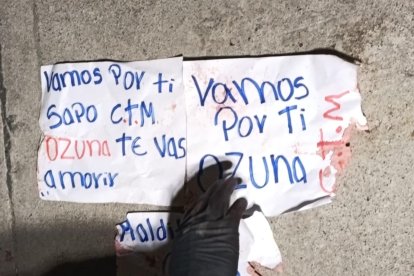 Vamos Por ti
SAPO C.T.M.
OZUNA TE VAS
amorir
Vamos
Por Ti
OZUNA
C.T.M